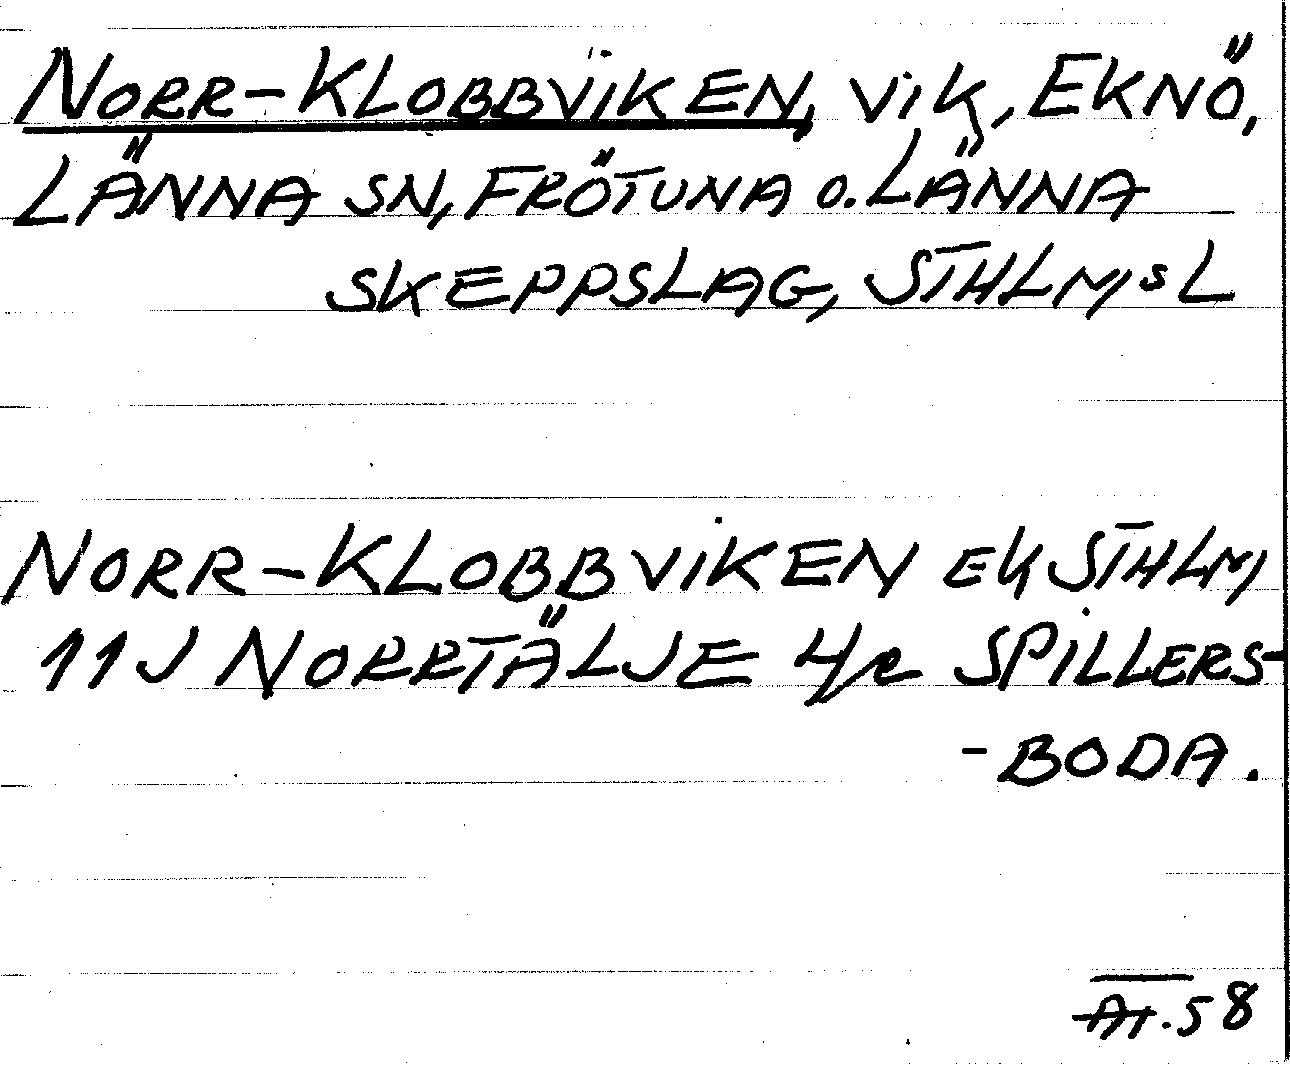 NORR-KLOBBVIKEN, VIK, EKNÖ,
LÄNNA SN, FRÖTUNA O. LÄNNA
SKEPPSLAG, STHLMS L
NORR-KLOBBVIKEN EK STHLM
11J NORRTÄLJE 4/e SPILLERS-
-BODA.
AI. 58